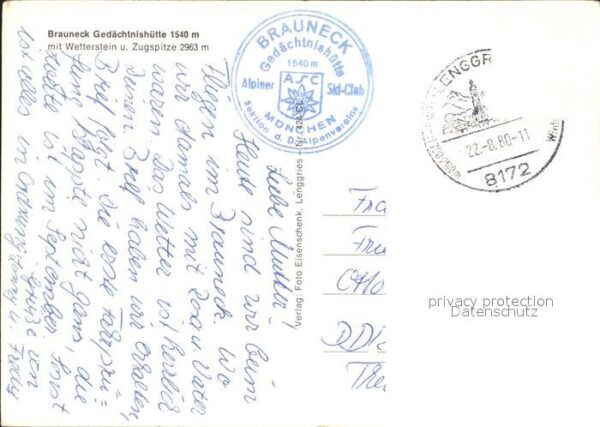 Brauneck Gedächtnishütte 1540 m
mit Wetterstein u. Zugspitze 2963 m
BRAUNECK
Gedächtnishütte
1540 m
Alpiner ASC Ski-Club
MÜNCHEN
Sektion d. D. Alpenvereins
LENGGR
22.-8.80-11
8172
Verlag: Foto Eisenschenk, Lenggries - Nr.
Liebe Mutter!
Heute sind wir beim
Fliegen im Brauneck. Wo
wir damals mit Rosa u. Vater
waren. Das Wetter ist herrlich
Deinen Brief haben wir erhalten,
Brief jetzt die
ganz, die
ist im September. Sonst
ist alles in Ordnung.
Grüße von
u.
Fra
Fra
Otto
DD
The
privacy protection
Datenschutz